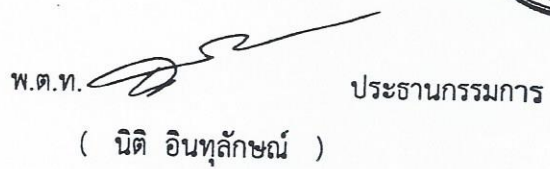 พ.ต.ท. ประธานกรรมการ
( นิติ อินทุลักษณ์ )